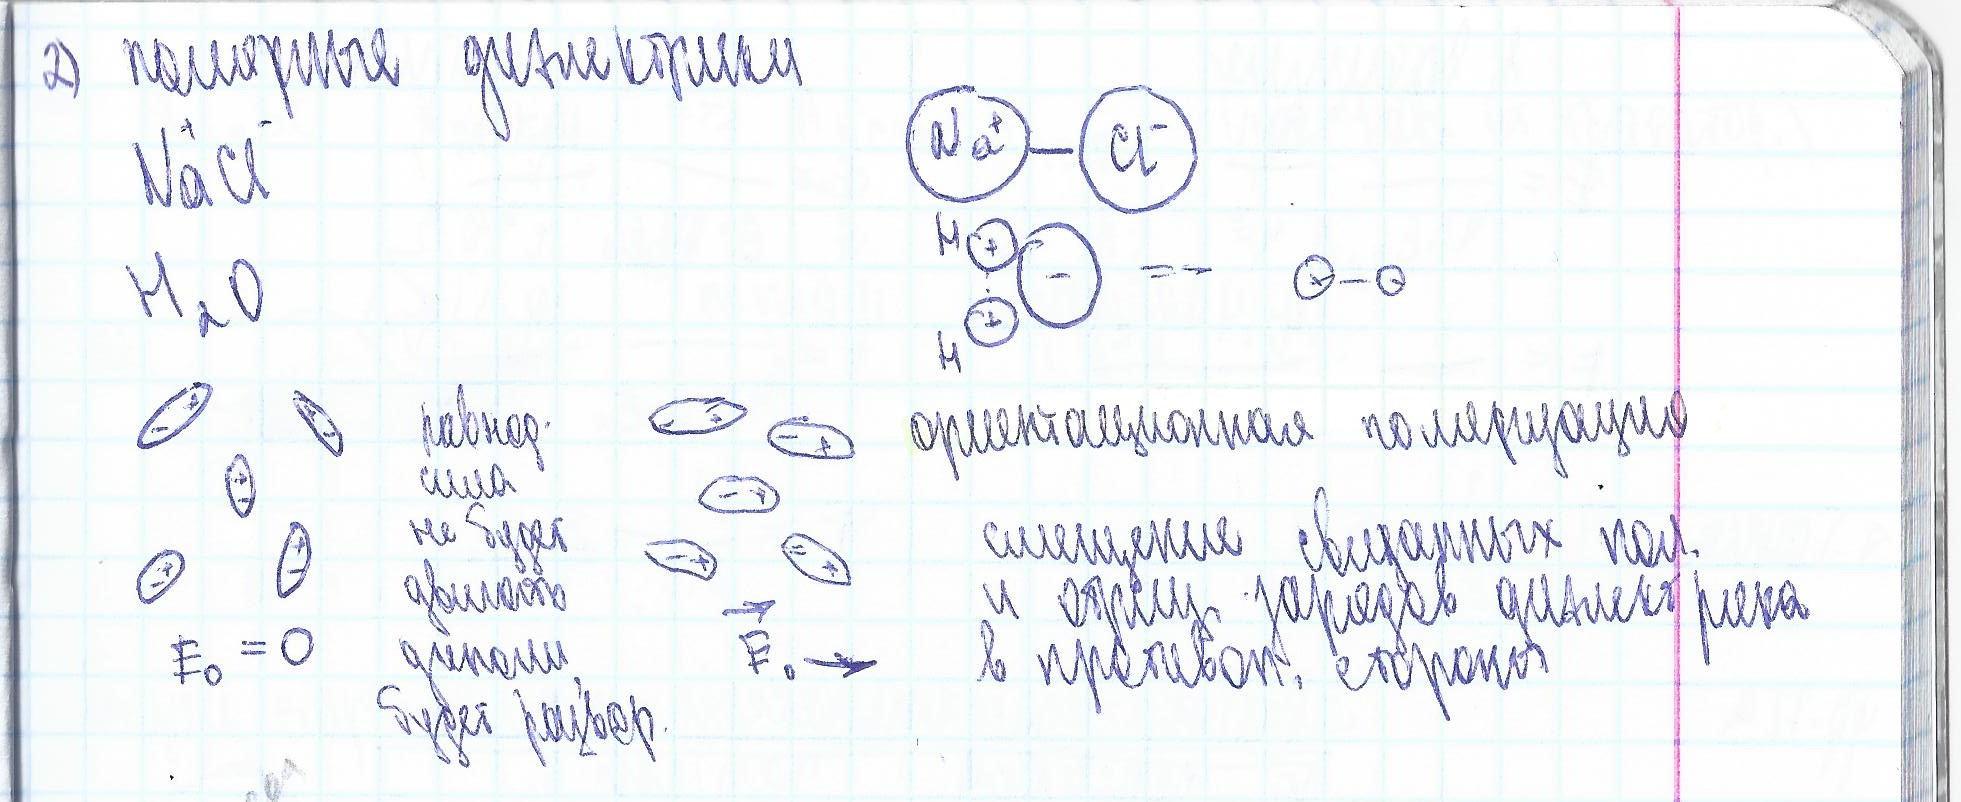 2) полярные диэлектрики
Na⁺Cl⁻
Na⁺ – Cl⁻
H₂O
H + - == + – -
H +
равнод. сила не будет двигать диполи, будет развор.
E₀ = 0
E₀ →
ориентационная поляризация
смещение связанных пол.
и отриц. зарядов диэлектрика
в противоп. стороны